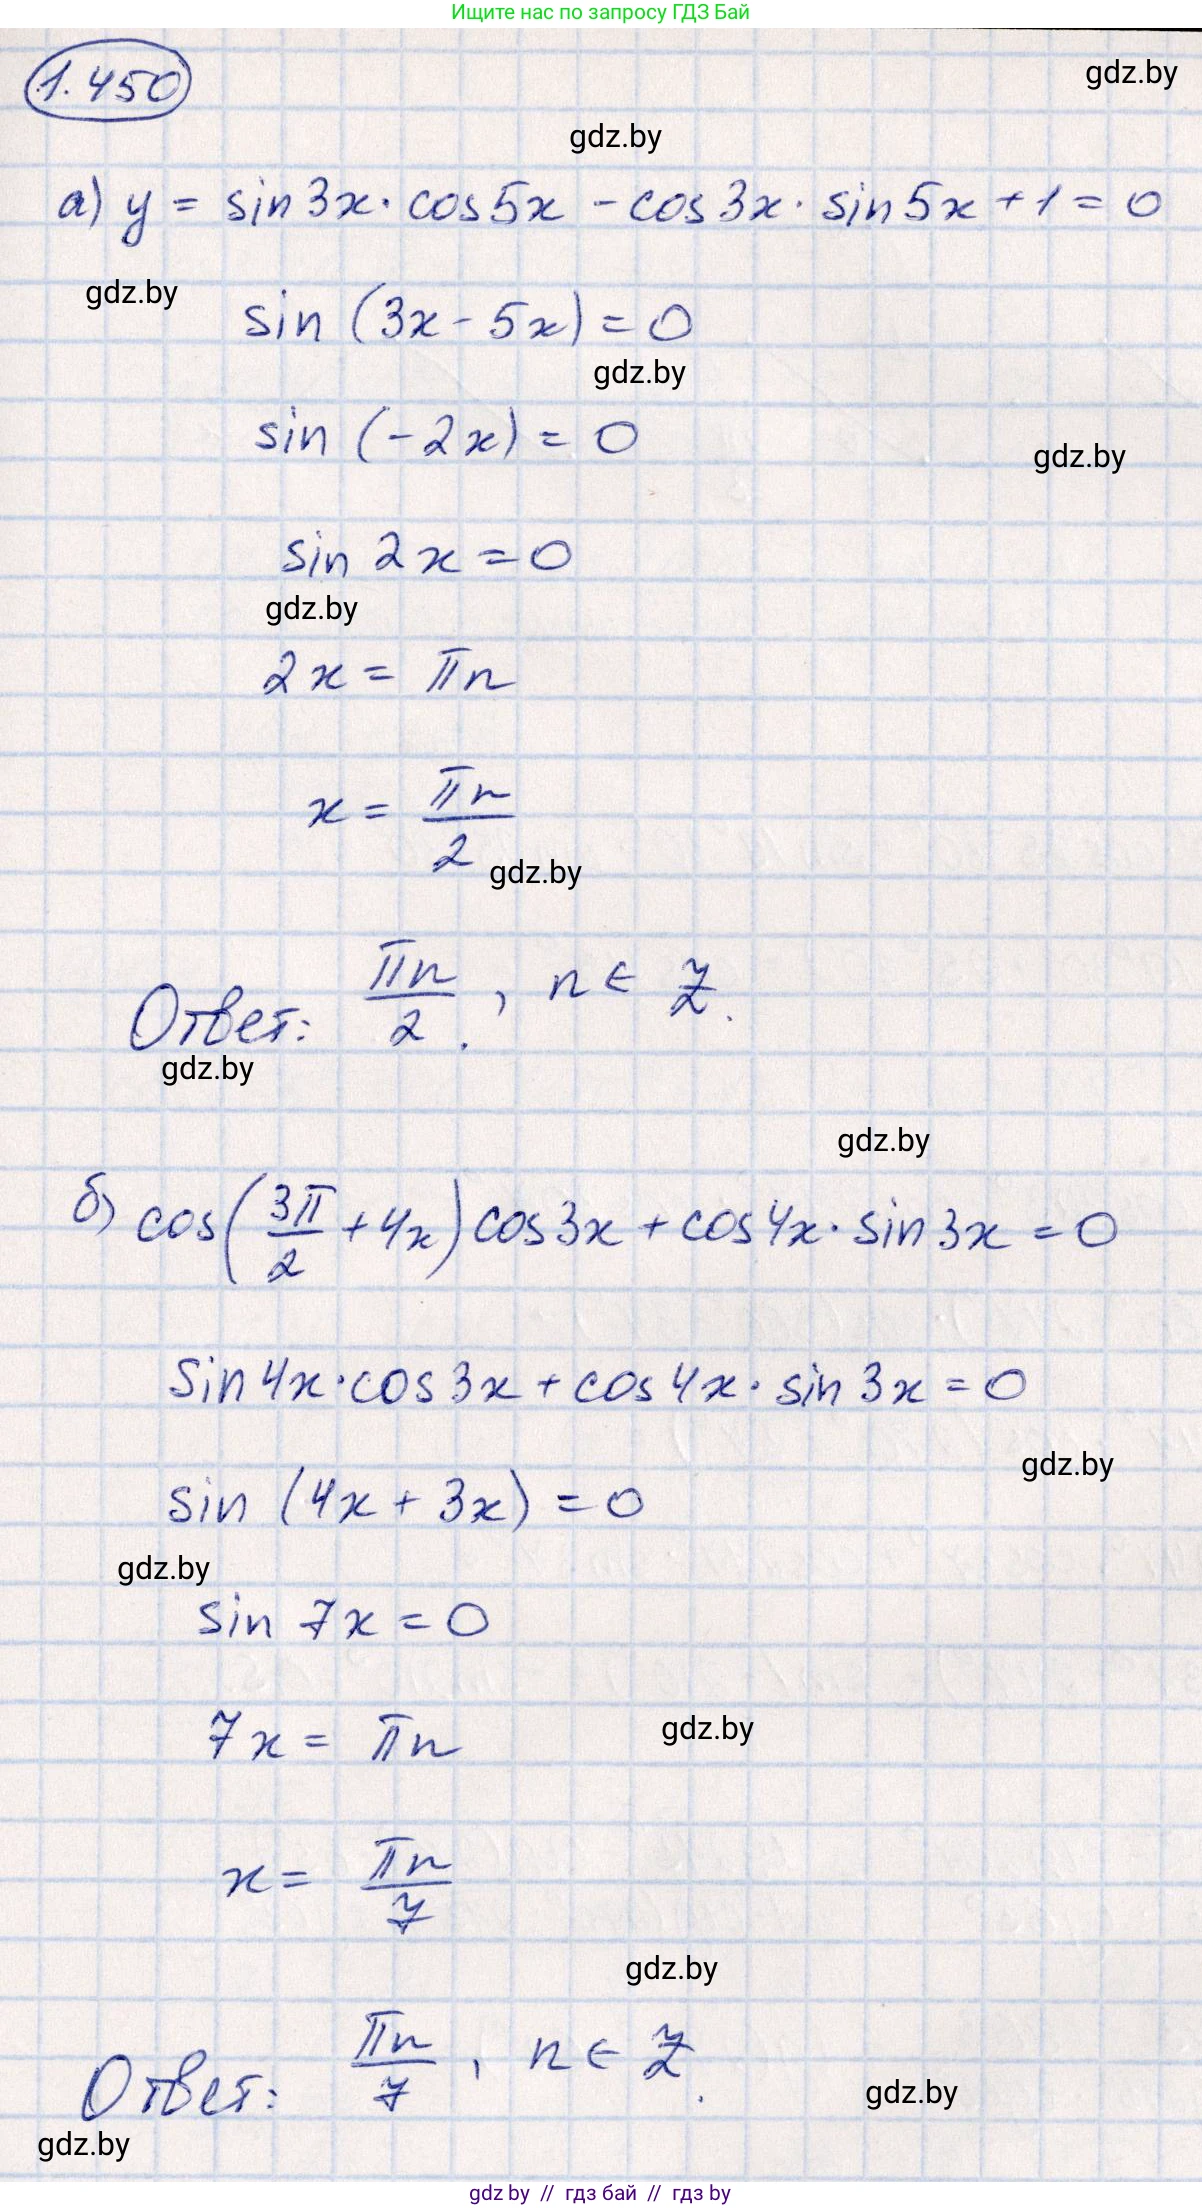 Ищите нас по запросу ГДЗ Бай
1.450
gdz.by
gdz.by
а) y = sin3x · cos5x - cos3x · sin5x + 1 = 0
gdz.by
sin (3x - 5x) = 0
gdz.by
sin (-2x) = 0
gdz.by
sin 2x = 0
gdz.by
2x = πn
x = πn/2
gdz.by
Ответ: πn/2, n ∈ Z.
gdz.by
gdz.by
б) cos(3π/2 + 4x) cos3x + cos4x · sin3x = 0
sin4x · cos3x + cos4x · sin3x = 0
gdz.by
sin (4x + 3x) = 0
gdz.by
sin 7x = 0
7x = πn
gdz.by
x = πn/7
gdz.by
Ответ: πn/7, n ∈ Z.
gdz.by
gdz.by
gdz by // гдз бай // гдз by